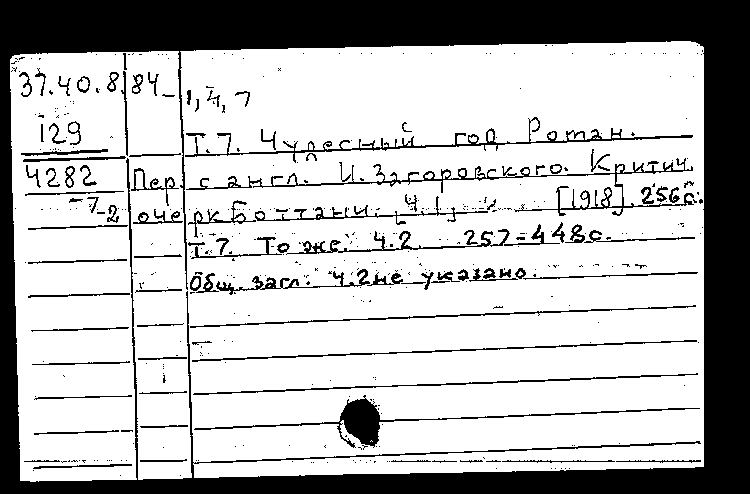 37.40.8.84-1,4,7
129
Т.7. Чудесный год Роман.
4282 Пер. с англ. И. Загоровского. Критич.
-7-2 очерк Боттани. [Ч.1] [1918]. 256 с.
Т.7. То же. Ч.2 257-448 с.
Общ. загл. Ч.2 не указано.